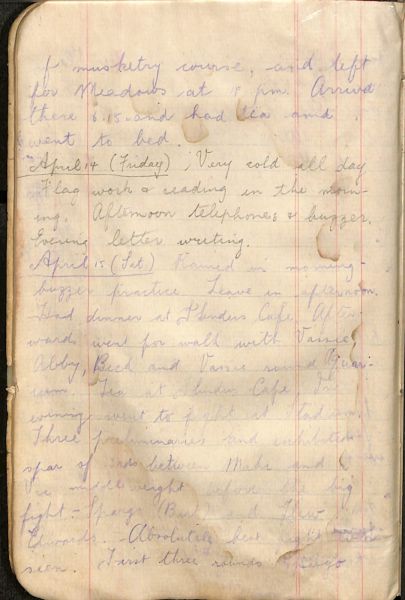 of musketry course, and left
for Meadows at pm. Arrived
there 6.15 and had tea and
went to bed.
April 14 (Friday) Very cold all day
Flag work & reading in the morn-
ing. Afternoon telephones & buzzer.
Evening letter writing.
April 15 (Sat.) Rained in morning-
buzzer practice Leave in afternoon.
Had dinner at Cafe After-
wards went for walk with Vassie,
Abby, Beed and Vassie round Aquar-
ium. Tea at Cafe In
evening went to fight at Stadium.
Three preliminaries and exhibition
spar of between and
before the big
fight -
Edwards. Absolutely best fight
seen. First three rounds